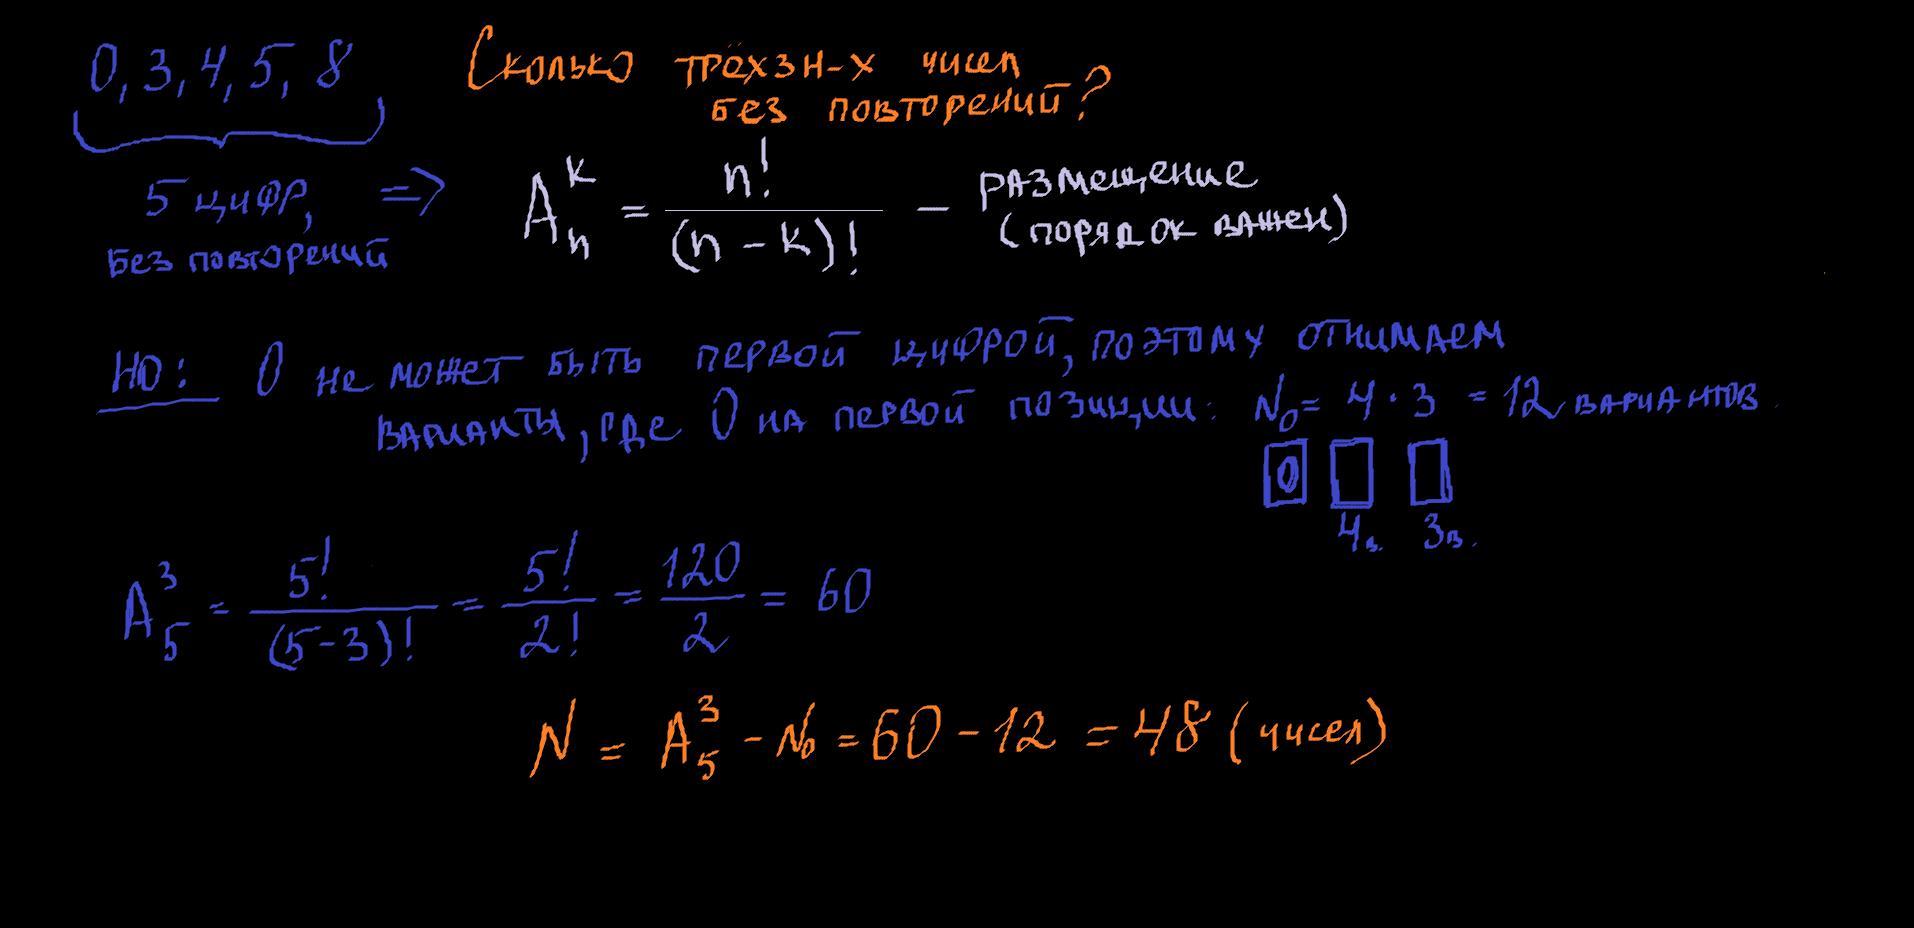 0, 3, 4, 5, 8
Сколько трёхзн-х чисел
без повторений?
5 цифр, =>
без повторений
A_n^k = n! / (n - k)! - размещение
(порядок важен)
НО: 0 не может быть первой цифрой, поэтому отнимаем
варианты, где 0 на первой позиции: N₀ = 4 · 3 = 12 вариантов.
0
4в. 3в.
A_5^3 = 5! / (5-3)! = 5! / 2! = 120 / 2 = 60
N = A_5^3 - N₀ = 60 - 12 = 48 (чисел)